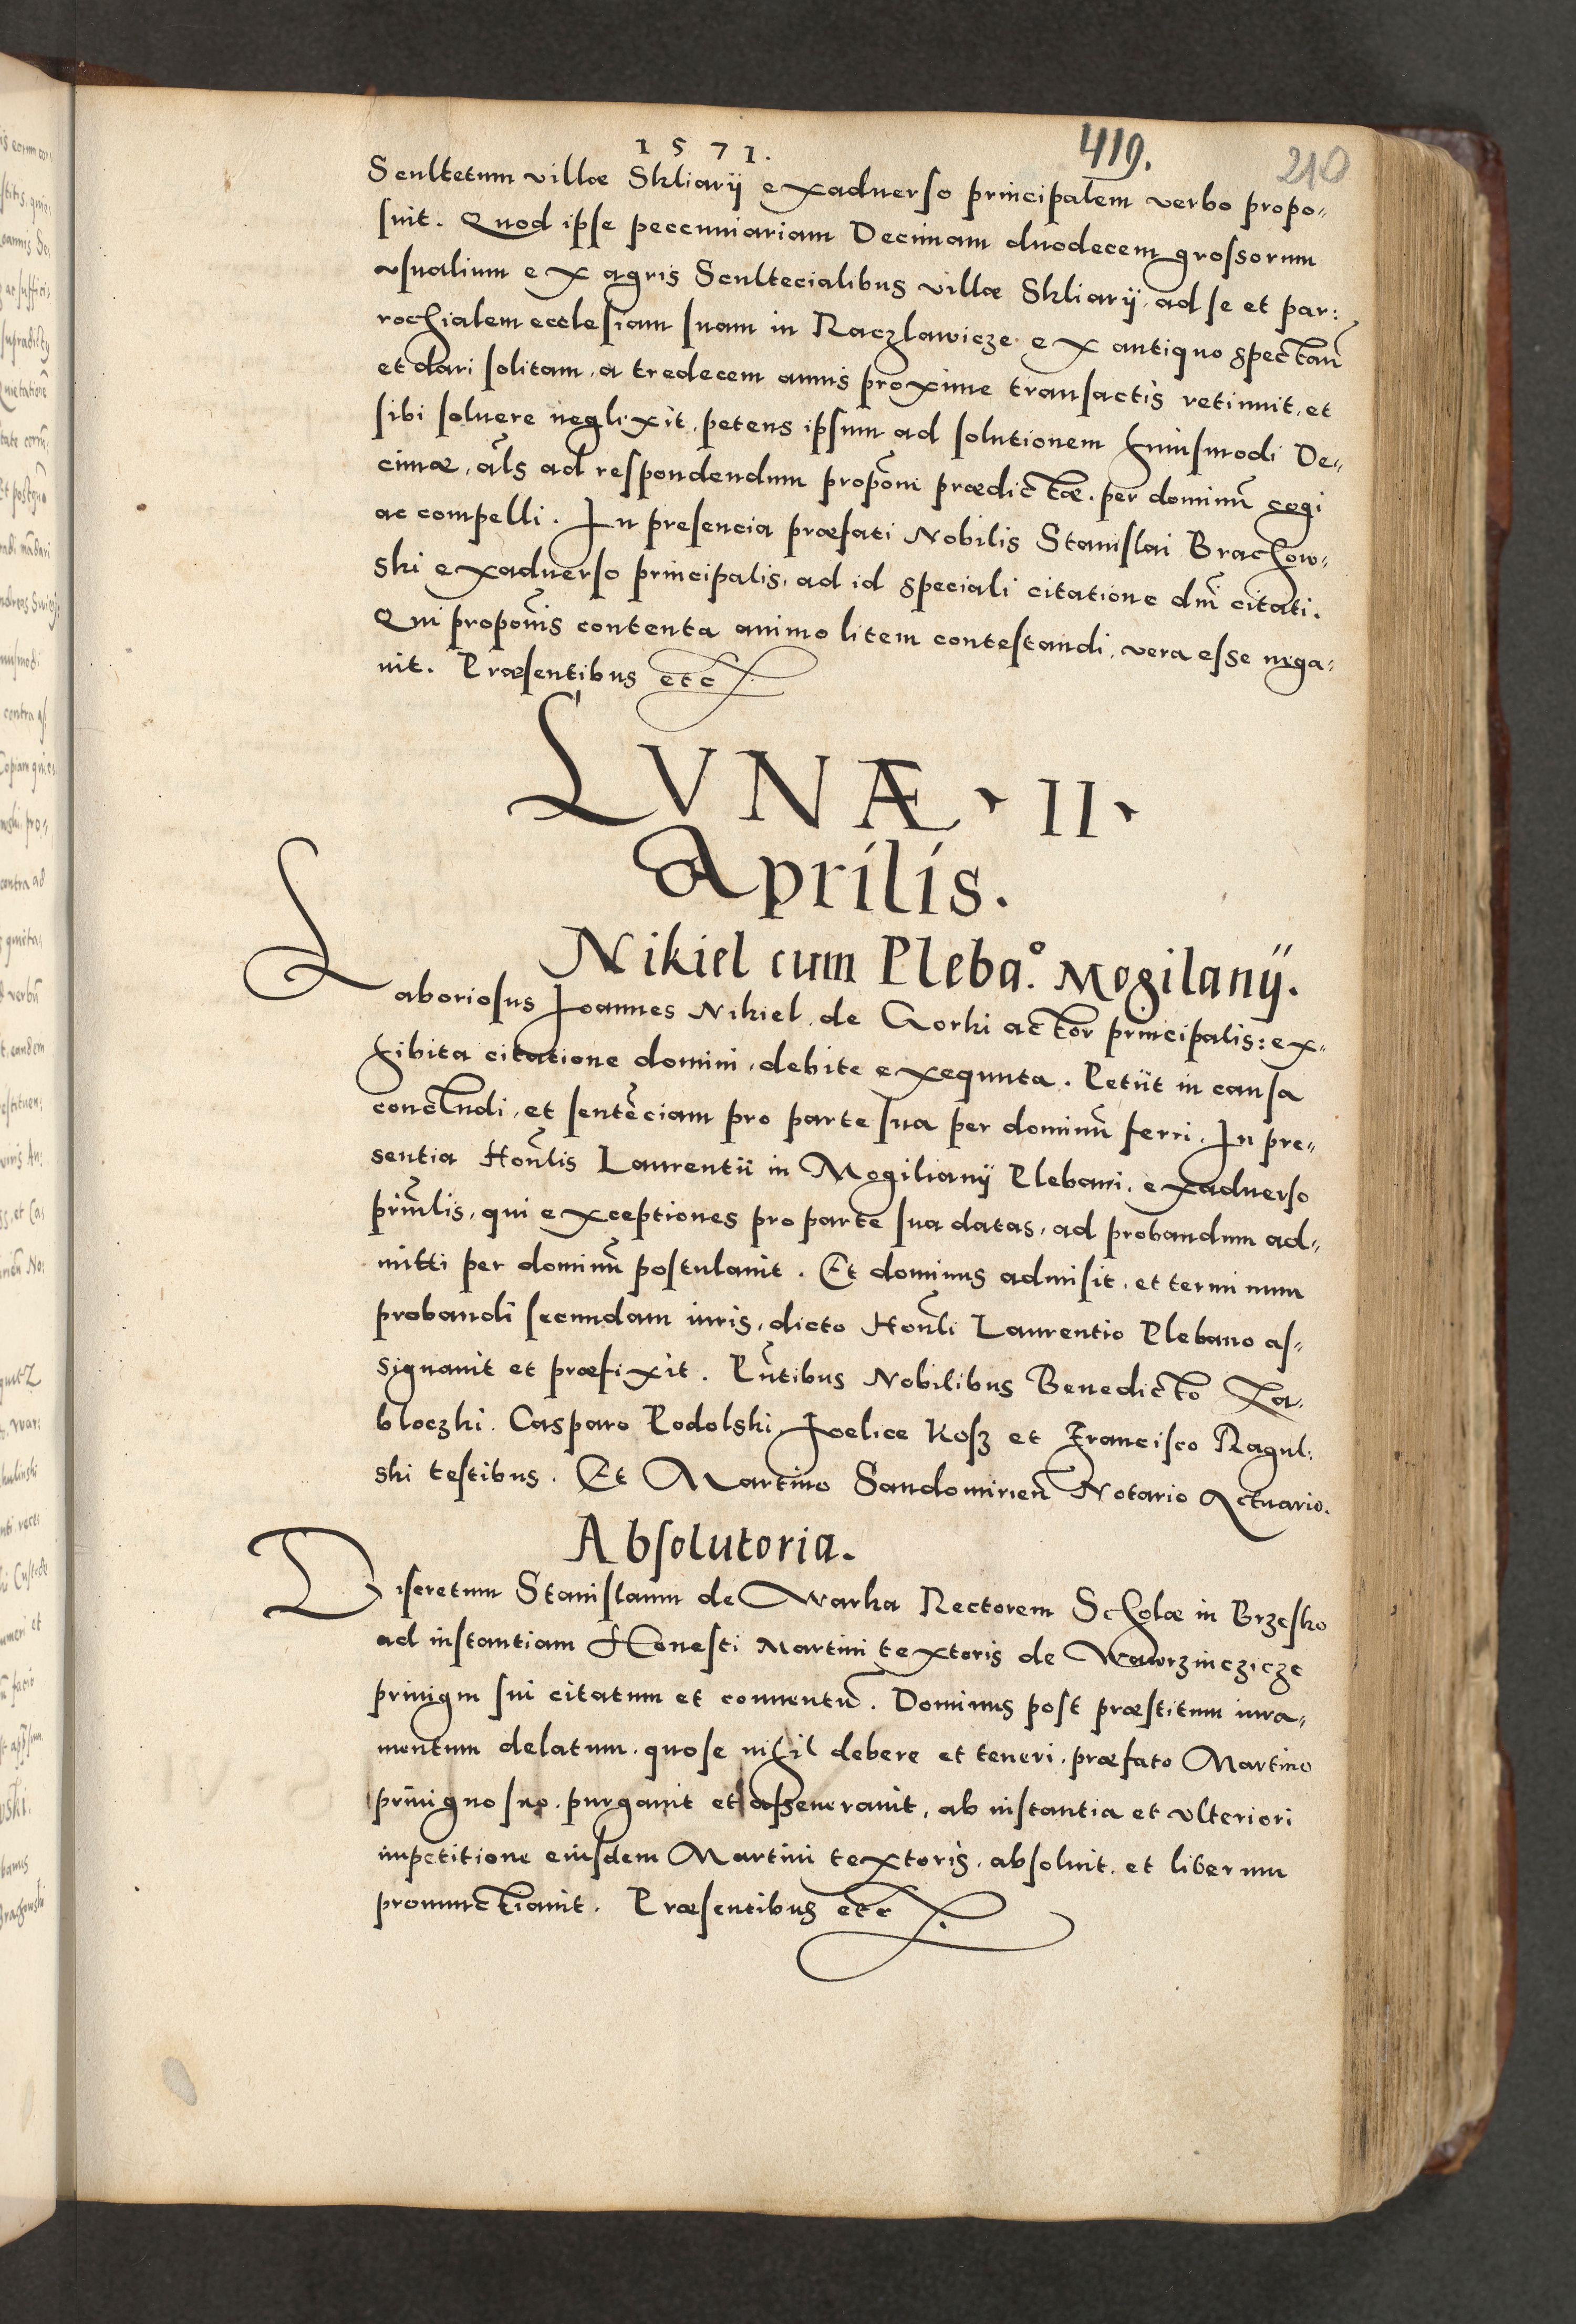 1571.
419.
210
Scultetum villæ Skliarÿ exaduerso principalem verbo propo„
suit. Quod ipse peccuniariam Decimam duodecem grossorum
vsualium ex agris Scultecialibus villæ Skliarÿ, ad se et par:
rochialem ecclesiam suam in Raczlawicze ex antiquo spectañ
et dari solitam, a tredecem annis proxime transactis retinuit, et
sibi soluere neglixit, petens ipsum ad solutionem huiusmodi De„
cimæ, al̃s ad respondendum propõni prædictæ, per dominũ cogi
ac compelli. In presencia præfati Nobilis Stanislai Brachow„
ski exaduerso principalis, ad id speciali citatione dñi citati.
Qui propoñis contenta animo litem contestandi, vera esse nega„
uit. Præsentibus etc
LVNÆ · II ·
Aprilis.
Nikiel cum Pleba.º Mogilanÿ.
Laboriosus Joannes Nikiel de Gorki actor principalis: ex„
hibita citatione domini, debite exequuta. Petÿt in causa
concludi, et sentẽciam pro parte sua per dominũ ferri. In pre„
sentia Hoñlis Laurentii in Mogilianÿ Plebani, exaduerso
priñlis, qui exceptiones pro parte sua datas, ad probandum ad„
mitti per dominũ postulauit. Et dominus admisit, et terminum
probandi secundam iuris, dicto Hoñli Laurentio Plebano as„
signauit et præfixit. Pñtibus Nobilibus Benedicto Za„
bloczki. Casparo Podolski, Foelice Kosz et Francisco Ragul:
ski testibus. Et Martino Sandomirieñ Notario Actuario.
Absolutoria.
Discretum Stanislaum de Warka Rectorem Scholæ in Brzesko
ad instantiam Honesti Martini textoris de Wawrzinczicze
priuignj sui citatum et conuentũ. Dominus post præstitum iura„
mentum delatum, quo se nihil debere et teneri, præfato Martino
priuigno suo, purgauit et asseuerauit, ab instantia et vlteriori
impetitione eiusdem Martini textoris, absoluit, et liberum
pronunctiauit. Præsentibus etc